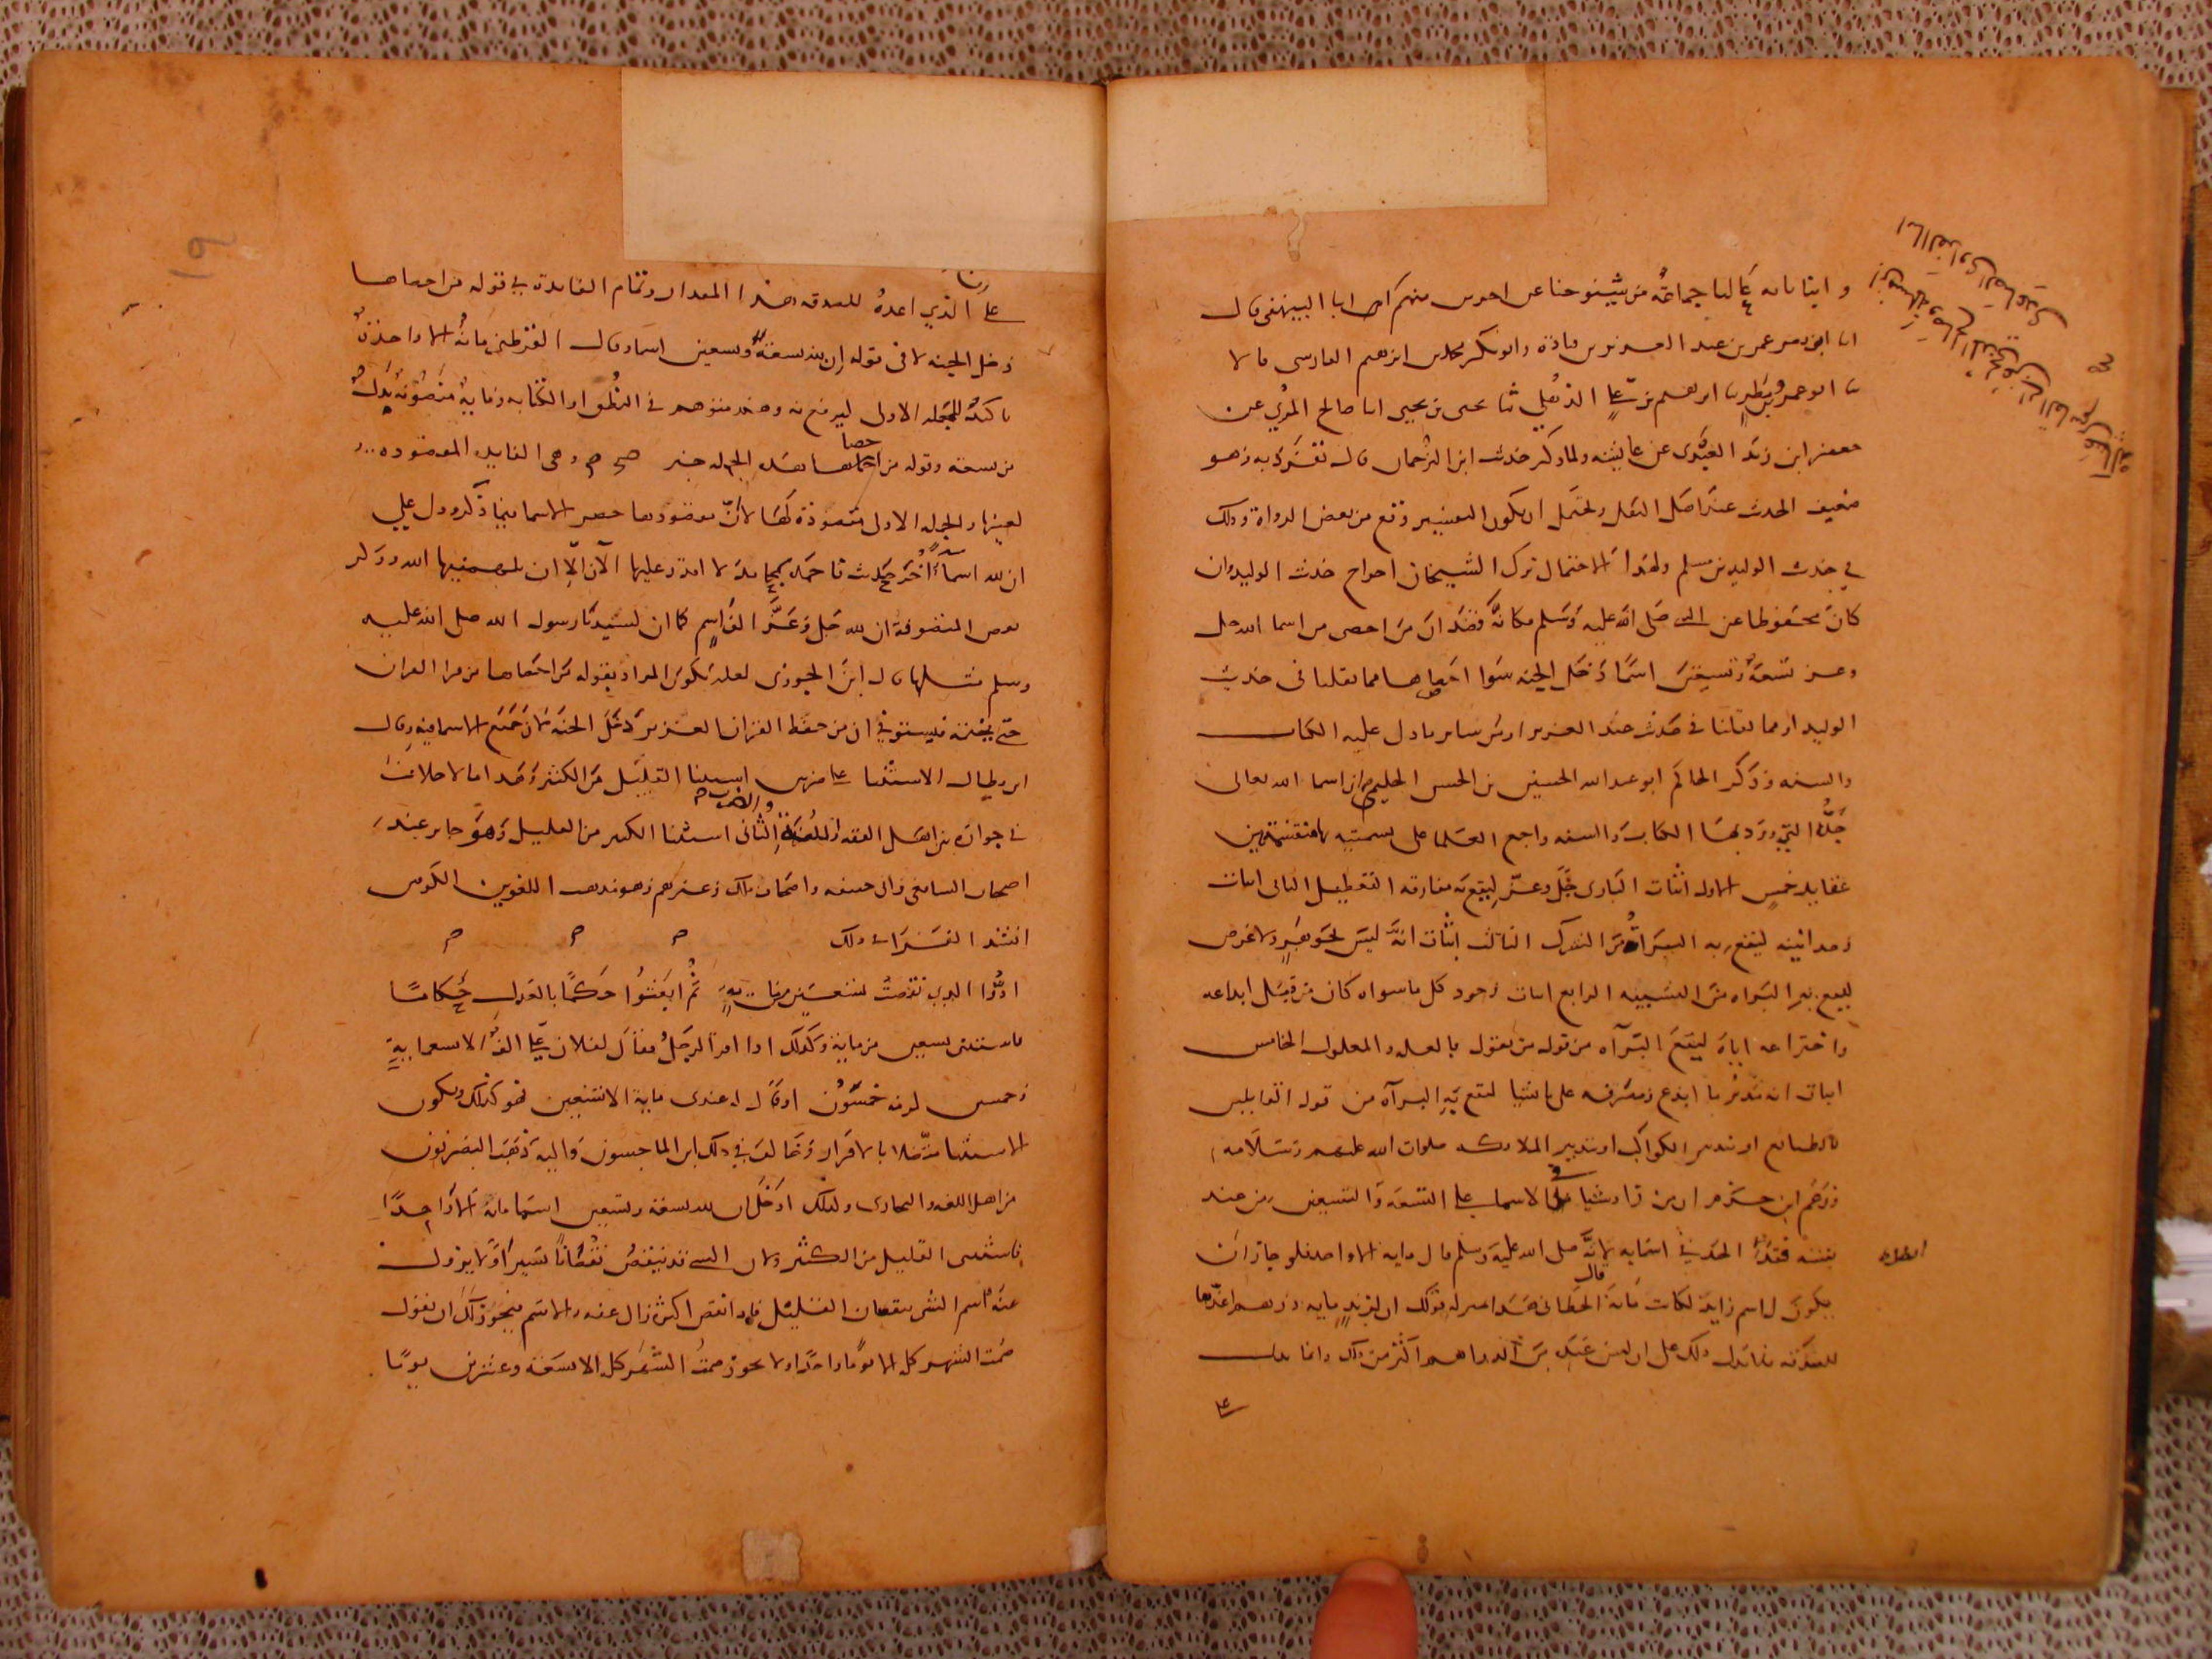 وانبأنا به عاليا جماعة من شيوخنا عن احمد منهم ابا البيهقي قال
انا ابو نصر عمر بن عبد العزيز بن قتادة وابو بكر محمد بن ابرهيم الفارسي قالا
ثنا ابو عمرو بن مطر ثنا ابرهيم بن علي الذهلي ثنا يحيى بن يحيى انا صالح المري عن
جعفر ابن زيد العبدي عن عايشة ولما ذكر حديث ابن الترجمان قال تفرد به وهو
ضعيف الحديث عند اهل النقل ويحتمل ان يكون التفسير وقع من بعض الرواة وذلك
في حديث الوليد بن مسلم ولهذا الاحتمال ترك الشيخان اخراج حديث الوليد وان
كان محفوظا عن النبي صلى الله عليه وسلم فكانه قصد ان من احصى من اسما الله جل
وعز تسعة وتسعين اسما دخل الجنة سوا احصاها مما نقلنا في حديث
الوليد او مما نقلنا في حديث عبد العزيز او من ساير ما دل عليه الكتاب
والسنة وذكر الحاكم ابو عبد الله الحسين بن الحسن الحليمي ان اسما الله تعالى
جل التي ورد بها الكتاب والسنة واجمع العلما على تسميته بها منقسمة بين
عقايد خمس الاول اثبات الباري جل وعز ليقع به مفارقة التعطيل الثاني اثبات
وحدانيته ليقع به البراة من الشرك الثالث اثبات انه ليس بجوهر ولا عرض
ليقع به البراه من التشبيه الرابع اثبات وجود كل ما سواه كان من قبل ابداعه
واختراعه اياه ليقع البرآه من قول من يقول بالعلة والمعلول الخامس
اثبات انه مدبر ما ابدع ومصرفه على ما يشا لتقع به البرآه من قول القايلين
بالطبايع او تدبير الكواكب او تدبير الملايكه صلوات الله عليهم وسلامه
وزعم ابن حزم ان من زاد شيا في الاسما على التسعة والتسعين من عند
نفسه فقد الحد في اسمايه لانه صلى الله عليه وسلم قال مايه الا واحد فلو جاز ان
يكون له اسم زايد لكانت مائة قال الخطابي هذا بمنزلة قولك ان لزيد مايه درهم اعدها
للصدقه فلا يدل ذلك على ان ليس عنده من الدراهم اكثر من ذلك وانما يدل
على
على الذي اعده للصدقه هذا المقدار وتمام الفايدة في قوله من احصاها
دخل الجنه لا في قوله ان لله تسعة وتسعين اسما وقال القرطبي مائة الا واحدة
تاكيد للجملة الاولى ليرفع به وهم متوهم في النطق او الكتابه
من تسعة وقوله من احصاها هذه الجمله خبر وهي الفايده المقصوده
لعينها والجمله الاولى مقصوده لها لان مقصودها حصر الاسما فيما ذكر ودل علي
ان لله اسماء اخر حديث فاحمده بمحامد لا اقدر عليها الآن الا ان يلهمنيها الله وذكر
بعض المتصوفة ان لله جل وعز الف اسم كما ان لسيدنا رسول الله صلى الله عليه
وسلم مثلها قال ابن الجوزي لعله يكون المراد بقوله من احصاها من قرا القران
حتى يختمه فيستوفي ان من حفظ القران العزيز دخل الجنه لان جميع الاسما فيه وقال
ابن بطال الاستثنا على ضربين استثنا القليل من الكثير وهذا ما لا خلاف
في جوازه بين اهل الفقه واللغة والضرب الثاني استثنا الكثير من القليل وهو جايز عند
اصحاب الشافعي وابي حنيفه واصحاب مالك وغيرهم وهو مذهب اللغويين الكوفيين
انشد الفراء ذلك
ادوا الذي نقصت تسعين من ماية ثم ابعثوا حكما بالعدل حكاما
فاستثنى تسعين من ماية وكذلك اذا اقر الرجل فقال لفلان علي الف الا تسعمايه
وخمسين لزمه خمسون او قال له عندي ماية الا تسعين فهو كذلك ويكون
الاستثنا متصلا بالاقرار وخالف في ذلك ابن الماجشون واليه ذهب البصريون
من اهل اللغه والبخاري ولذلك ادخل ان لله تسعة وتسعين اسما ماية الا واحدا
فاستثنى القليل من الكثير ولان الشي قد ينقص نقصانا يسيرا ولا يزول
عنه اسم الشي بنقصان القليل فاذا نقص اكثر زال عنه الاسم فيجوز لك ان تقول
صمت الشهر كله الا يوما واحدا ولا يجوز صمت الشهر كله الا تسعة وعشرين يوما